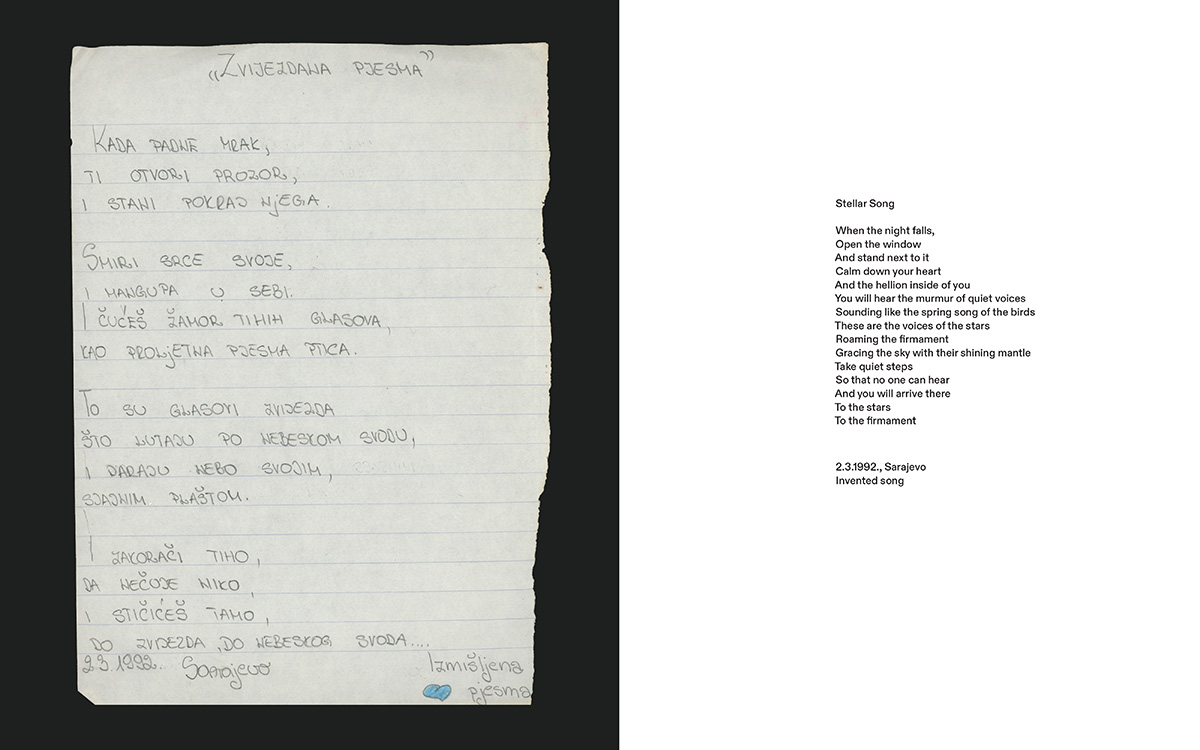 „Zvijezdana pjesma”
Kada padne mrak,
ti otvori prozor,
i stani pokraj njega.
Smiri srce svoje,
i mangupa u sebi.
I čućeš žamor tihih glasova,
kao proljetna pjesma ptica.
To su glasovi zvijezda
što lutaju po nebeskom svodu,
i daraju nebo svojim,
sjajnim plaštom.
I zakorači tiho,
da nečuje niko
i stičićeš tamo,
do zvijezda, do nebeskog svoda....
2.3.1992. Sarajevo
Izmišljena
pjesma
Stellar Song
When the night falls,
Open the window
And stand next to it
Calm down your heart
And the hellion inside of you
You will hear the murmur of quiet voices
Sounding like the spring song of the birds
These are the voices of the stars
Roaming the firmament
Gracing the sky with their shining mantle
Take quiet steps
So that no one can hear
And you will arrive there
To the stars
To the firmament
2.3.1992., Sarajevo
Invented song